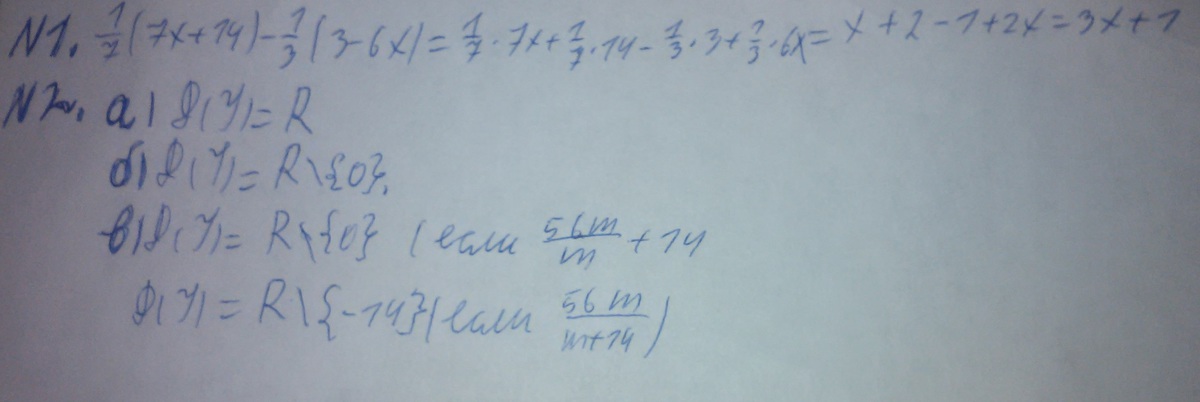 N1. 1/7 (7x+14) - 1/3 (3-6x) = 1/7 · 7x + 1/7 · 14 - 1/3 · 3 + 1/3 · 6x = x + 2 - 1 + 2x = 3x + 1
N2. а) D(y) = R
б) D(y) = R \ {0}.
в) D(y) = R \ {0} (если 56m/m + 14
D(y) = R \ {-14} (если 56m/(m+14))